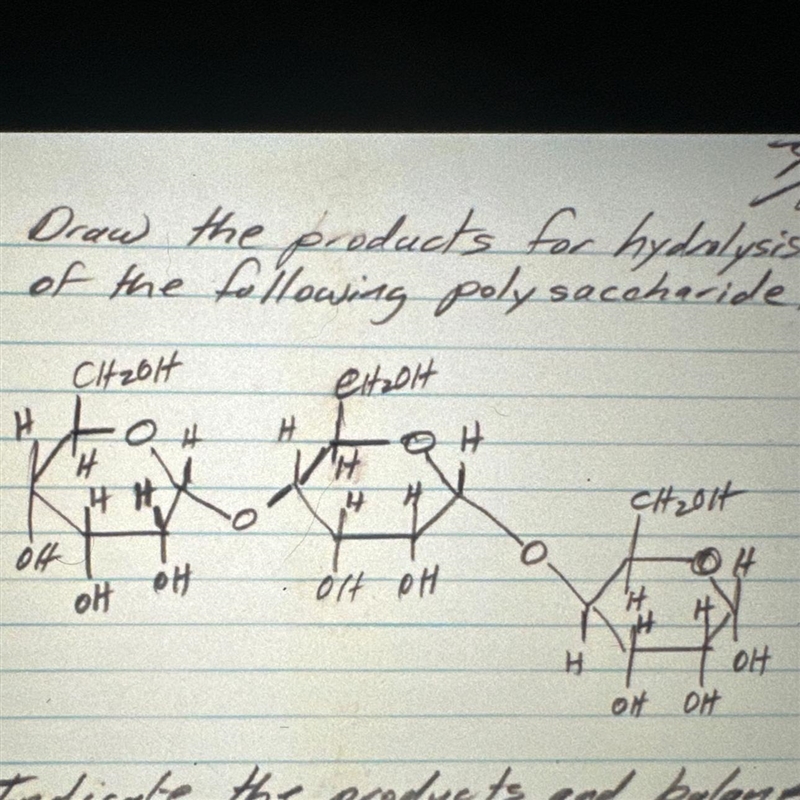 Draw the products for hydrolysis
of the following polysaccharide.
CH2OH CH2OH
H O H H O H
H H H H H H CH2OH
O O O H
OH OH OH OH OH H H H
H OH
OH OH
Indicate the products and balan